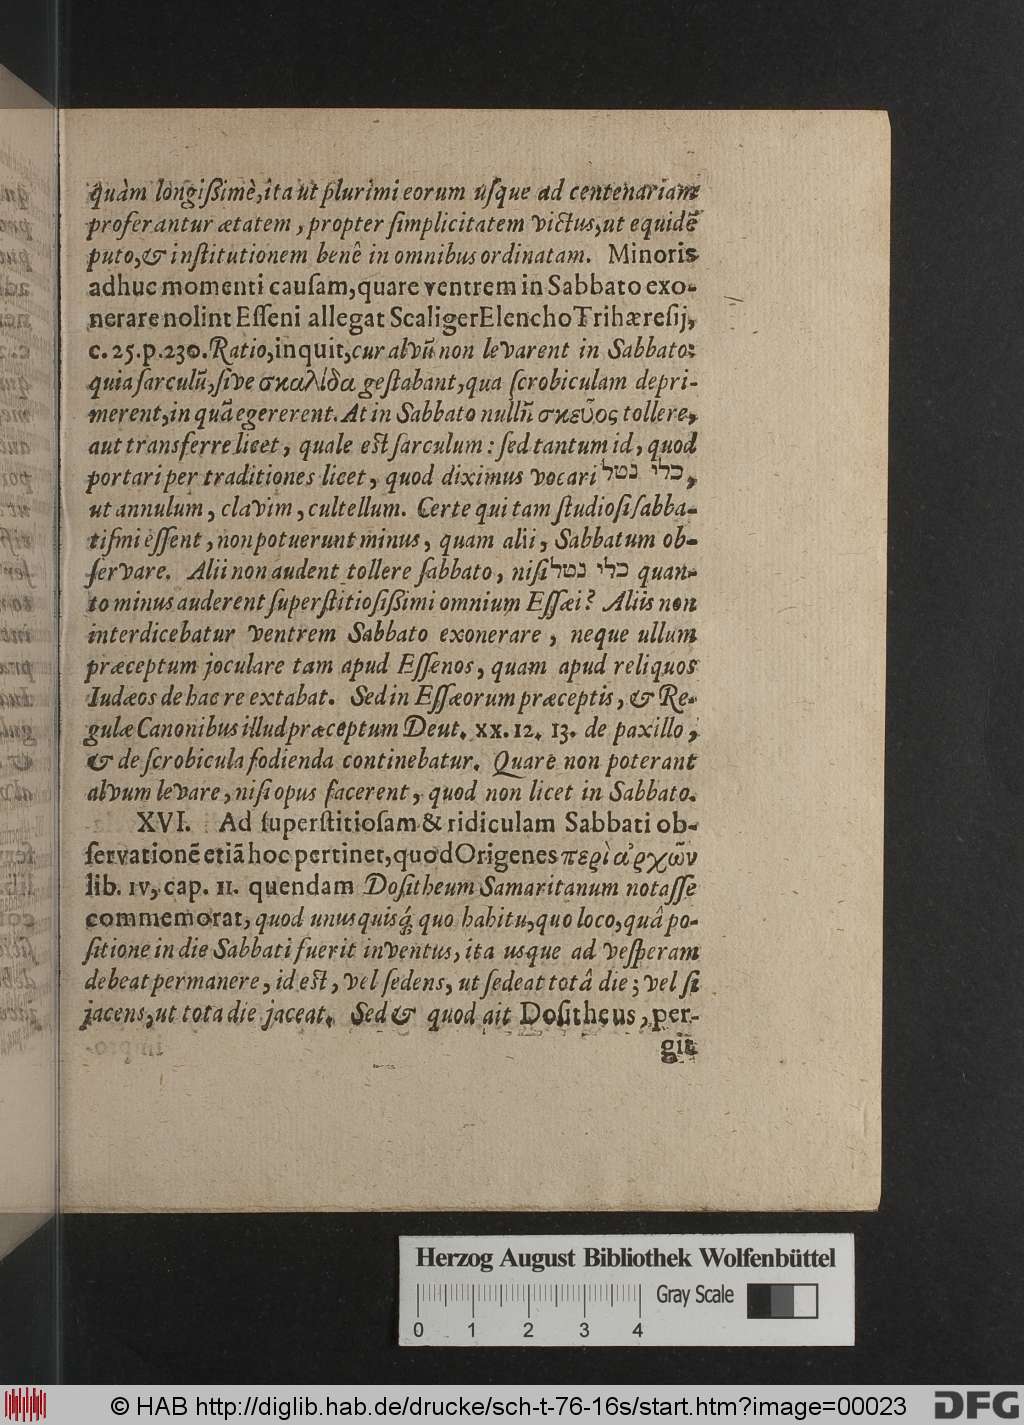 quàm longiſſimè, ita ut plurimi eorum uſque ad centenariam
proferantur ætatem, propter ſimplicitatem victus, ut equidē
puto, & inſtitutionem benê in omnibus ordinatam. Minoris
adhuc momenti cauſam, quare ventrem in Sabbato exo-
nerare nolint Eſſeni allegat Scaliger Elencho Trihæreſij,
c. 25. p. 230. Ratio, inquit, cur alvū non levarent in Sabbato:
quia ſarculū, ſive σκαλίδα geſtabant, qua ſcrobiculam depri-
merent, in quā egererent. At in Sabbato nullū σκεῦος tollere,
aut transferre licet, quale eſt ſarculum: ſed tantum id, quod
portari per traditiones licet, quod diximus vocari כלי נטל,
ut annulum, clavim, cultellum. Certe qui tam ſtudioſi ſabba-
tiſmi eſſent, non potuerunt minus, quam alii, Sabbatum ob-
ſervare. Alii non audent tollere ſabbato, niſi כלי נטל quan-
to minus auderent ſuperſtitioſiſſimi omnium Eſſæi? Aliis non
interdicebatur ventrem Sabbato exonerare, neque ullum
præceptum joculare tam apud Eſſenos, quam apud reliquos
Iudæos de hac re extabat. Sed in Eſſæorum præceptis, & Re-
gulæ Canonibus illud præceptum Deut. xx. 12. 13. de paxillo,
& de ſcrobicula fodienda continebatur. Quare non poterant
alvum levare, niſi opus facerent, quod non licet in Sabbato.
XVI. Ad ſuperſtitioſam & ridiculam Sabbati ob-
ſervationē etiā hoc pertinet, quod Origenes περὶ ἀρχῶν
lib. IV, cap. II. quendam Doſitheum Samaritanum notaſſe
commemorat, quod unusquisq́; quo habitu, quo loco, quâ po-
ſitione in die Sabbati fuerit inventus, ita usque ad veſperam
debeat permanere, id eſt, vel ſedens, ut ſedeat totâ die; vel ſi
jacens, ut tota die jaceat. Sed & quod ait Doſitheus, per-
git
Herzog August Bibliothek Wolfenbüttel
Gray Scale
0 1 2 3 4
© HAB http://diglib.hab.de/drucke/sch-t-76-16s/start.htm?image=00023
DFG